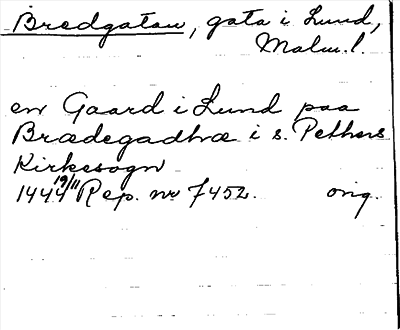 Bredgatan, gata i Lund,
Malm. l.
en Gaard i Lund paa
Brædegadhræ i s. Pethers
Kirkesogn
1444 19/11 Rep. nr 7452. orig.